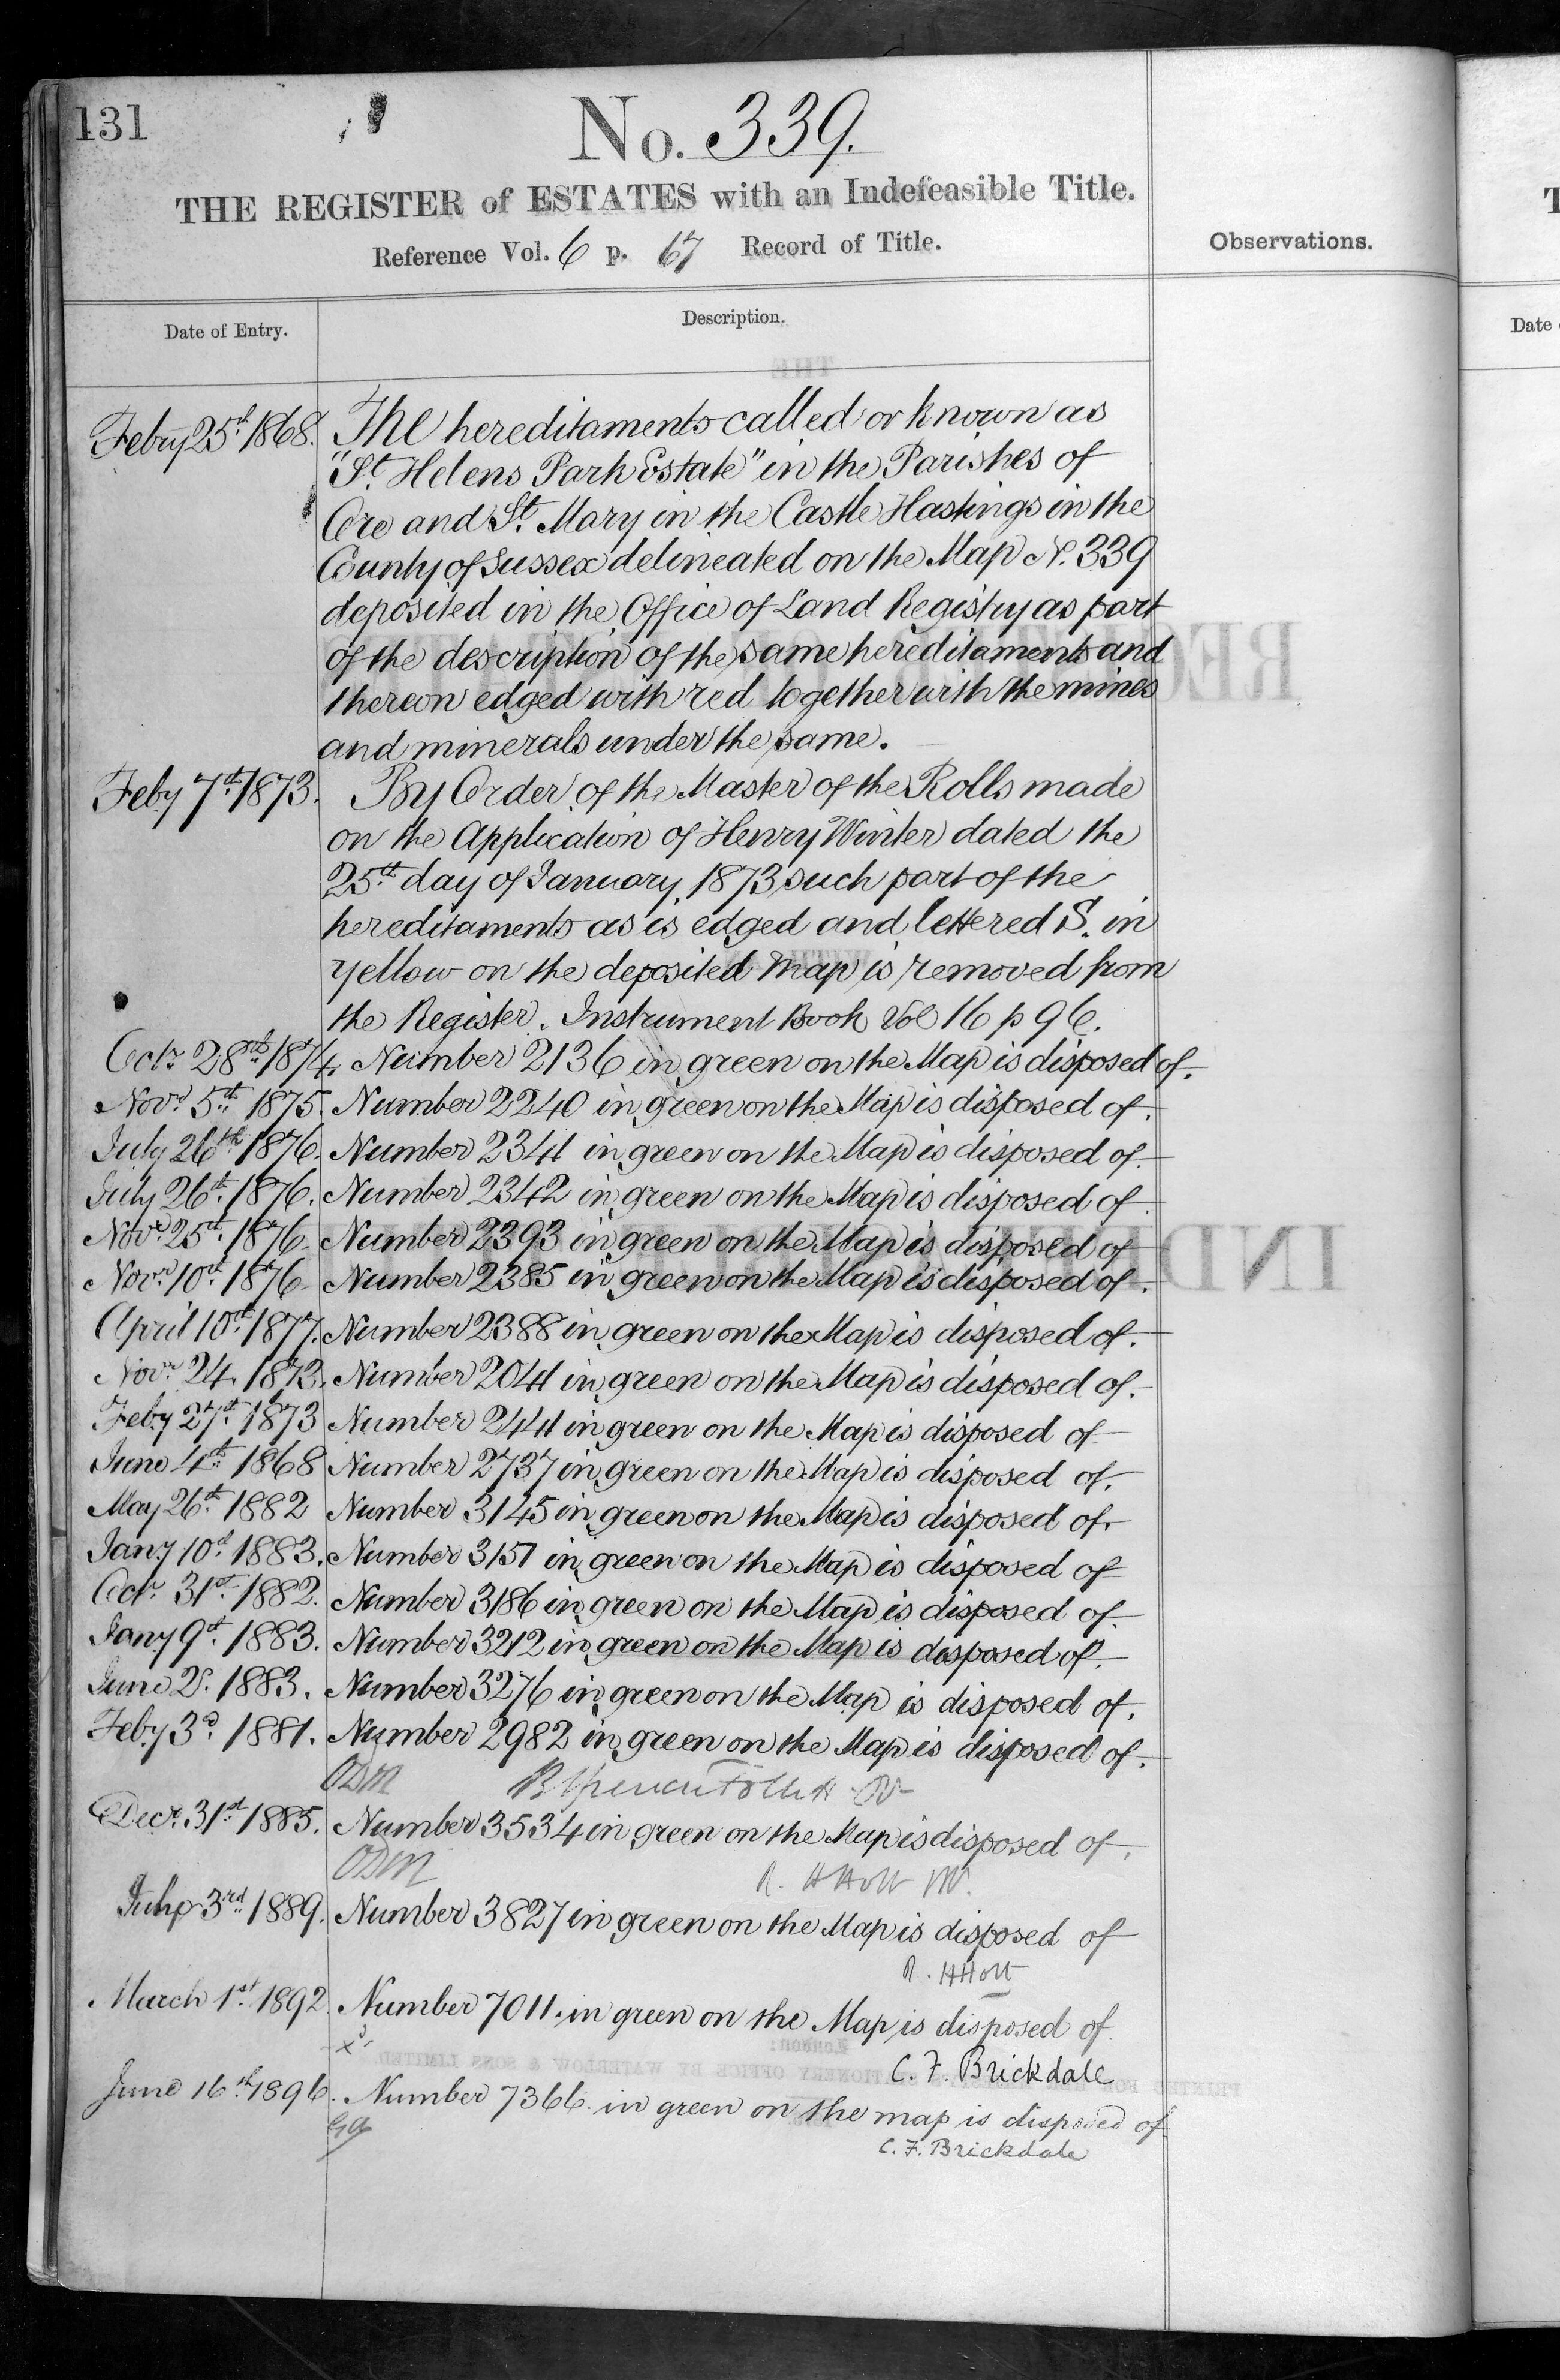 131
No. 339.
THE REGISTER of ESTATES with an Indefeasible Title.
Reference Vol. 6 p. 67 Record of Title.
Observations.
Date of Entry.
Description.
Date
Febry 25th 1868. The hereditaments called or known as
"St. Helens Park Estate" in the Parishes of
Ore and St. Mary in the Castle Hastings in the
County of Sussex delineated on the Map No. 339
deposited in the Office of Land Registry as part
of the description of the same hereditaments and
thereon edged with red together with the mines
and minerals under the same.
Feby 7th 1873. By Order of the Master of the Rolls made
on the Application of Henry Winter dated the
25th day of January 1873 such part of the
hereditaments as is edged and lettered S. in
yellow on the deposited Map is removed from
the Register. Instrument Book Vol 16 p 96.
Octr 28th 1874. Number 2136 in green on the Map is disposed of.
Novr 5th 1875. Number 2240 in green on the Map is disposed of.
July 26th 1876. Number 2341 in green on the Map is disposed of.
July 26th 1876. Number 2342 in green on the Map is disposed of.
Novr 25th 1876. Number 2393 in green on the Map is disposed of
Novr 10th 1876 Number 2385 in green on the Map is disposed of.
April 10th 1877. Number 2388 in green on the Map is disposed of.
Novr 24. 1873. Number 2041 in green on the Map is disposed of.
Feby 27th 1873 Number 2441 in green on the Map is disposed of
June 4th 1868 Number 2737 in green on the Map is disposed of.
May 26th 1882 Number 3145 in green on the Map is disposed of.
Jany 10th 1883. Number 3151 in green on the Map is disposed of
Octr 31st 1882. Number 3186 in green on the Map is disposed of.
Jany 9th 1883. Number 3212 in green on the Map is disposed of.
June 2d. 1883. Number 3276 in green on the Map is disposed of.
Feby 3d. 1881. Number 2982 in green on the Map is disposed of.
ODM
Decr 31st 1885. Number 3534 in green on the Map is disposed of.
ODM R. H Holt
3rd 1889. Number 3827 in green on the Map is disposed of
R. H Holt
March 1st 1892. Number 7011. in green on the Map is disposed of.
C. F. Brickdale
June 16th 1896. Number 7366. in green on the map is disposed of
C. F. Brickdale